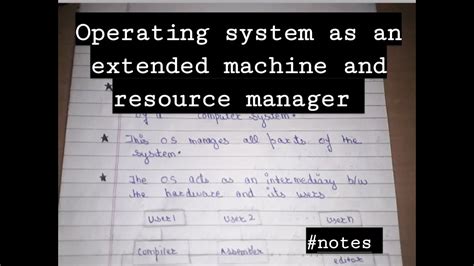 Operating system as an
extended machine and
resource manager
by a computer system.
★ This OS manages all parts of the
system.
★ The OS acts as an intermediary b/w
the hardware and its users
user1 user 2 usern
Compiler Assembler editor
#notes